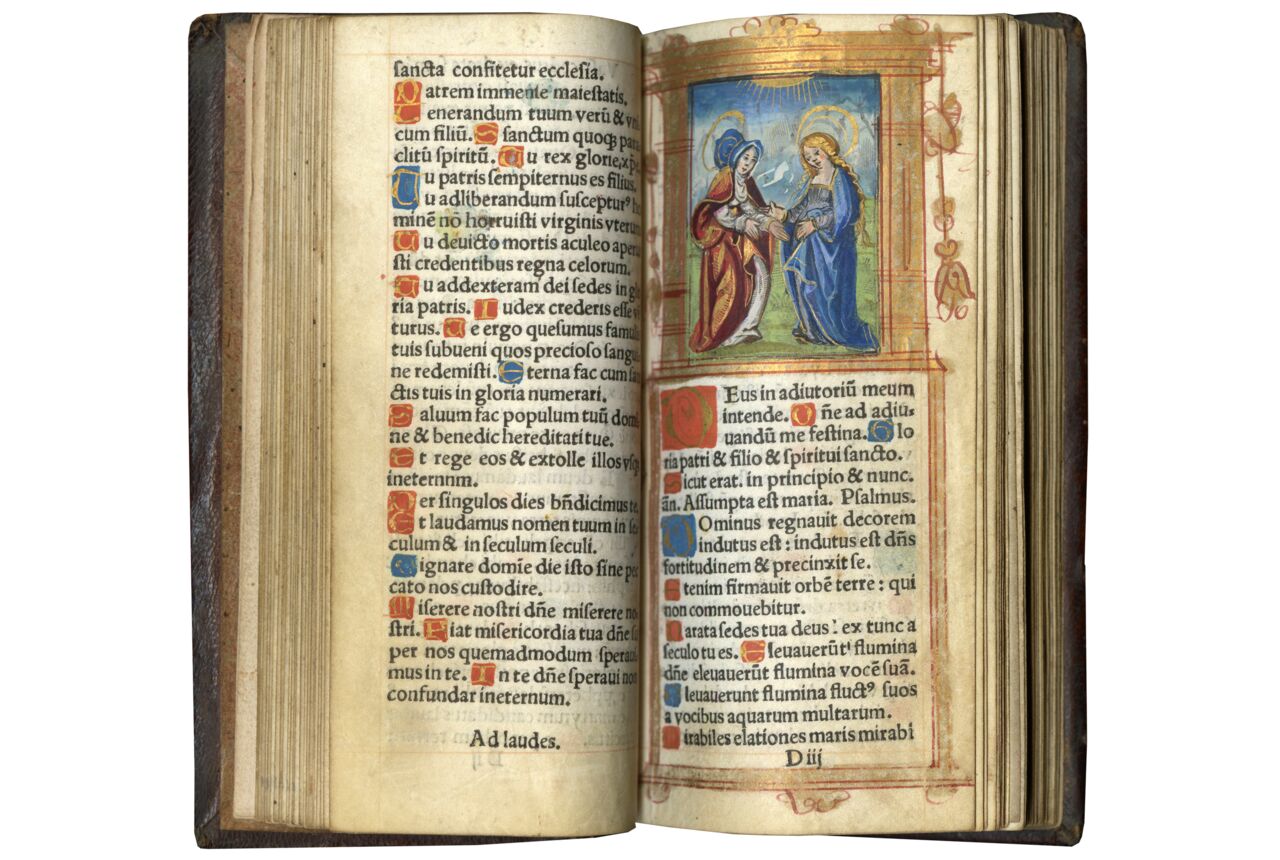 sancta confitetur ecclesia.
Patrem immense maiestatis.
Venerandum tuum verū & vni
cum filiū. Sanctum quoqꝫ para
clitū spiritū. Tu rex glorie, xp̄e
Tu patris sempiternus es filius.
Tu adliberandum susceptur⁹ ho
minē nō horruisti virginis vterum
Tu deuicto mortis aculeo aperui
sti credentibus regna celorum.
Tu addexteram dei sedes in glo
ria patris. Iudex crederis esse vē
turus. Te ergo quesumus famulis
tuis subueni quos precioso sangui
ne redemisti. Eterna fac cum san
ctis tuis in gloria numerari.
Saluum fac populum tuū domi
ne & benedic hereditati tue.
Et rege eos & extolle illos vsqꝫ
ineternnm.
Per singulos dies bn̄dicimus te.
Et laudamus nomen tuum in se
culum & in seculum seculi.
Dignare domīe die isto sine pec
cato nos custodire.
Miserere nostri dn̄e miserere no
stri. Fiat misericordia tua dn̄e su
per nos quemadmodum speraui
mus in te. In te dn̄e speraui non
confundar ineternum.
Ad laudes.
Deus in adiutoriū meum
intende. Dn̄e ad adiu
uandū me festina. Glo
ria patri & filio & spiritui sancto.
Sicut erat. in principio & nunc.
an̄. Assumpta est maria. Psalmus.
Dominus regnauit decorem
indutus est : indutus est dn̄s
fortitudinem & precinxit se.
Etenim firmauit orbē terre : qui
non commouebitur.
Parata sedes tua deus : ex tunc a
seculo tu es. Eleuauerūt flumina
dn̄e eleuauerūt flumina vocē suā.
Eleuauerunt flumina fluct⁹ suos
a vocibus aquarum multarum.
Mirabiles elationes maris mirabi
D iij